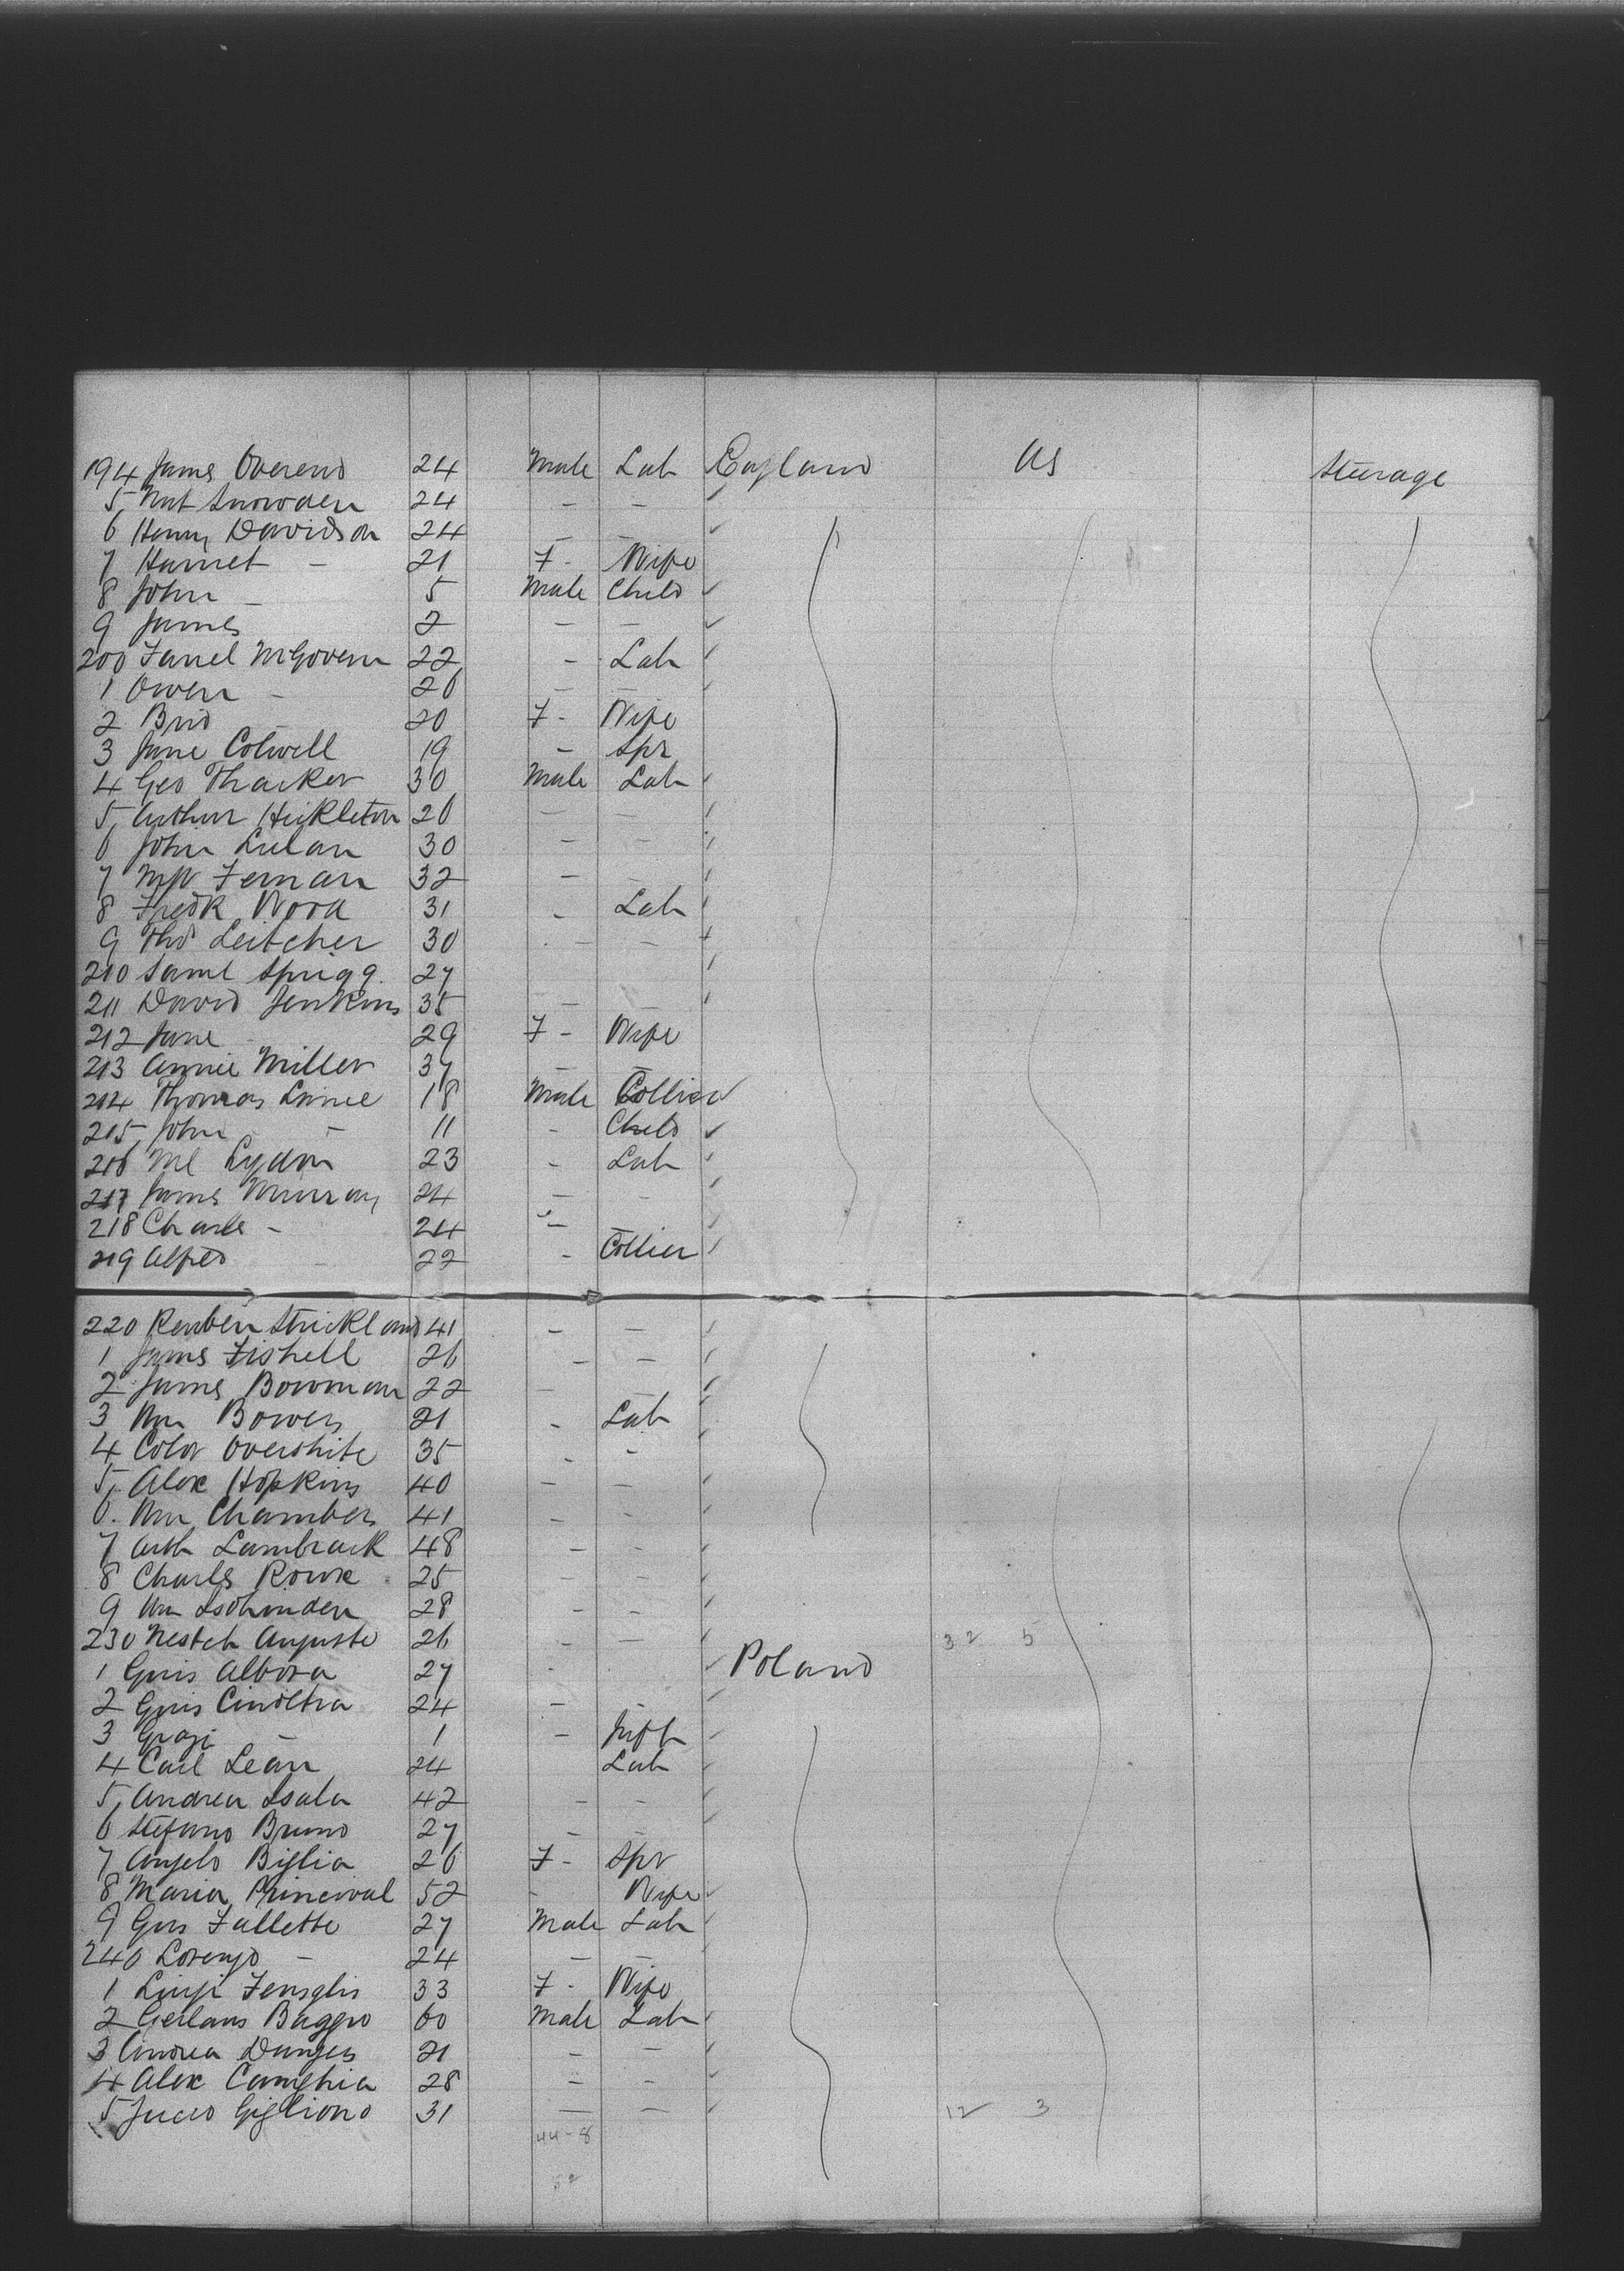 194 James Overend 24 Male Lab England US Steerage
5 Nat Snowden 24 - -
6 Henry Davidson 24 - -
7 Harriet - 21 F - Wife
8 John - 5 Male Child
9 James 2 - -
200 McGovern 22 - Lab
1 Owen - 26 - -
2 Brid - 20 F - Wife
3 Jane Colwell 19 - Spr
4 Geo Thacker 30 Male Lab
5 Arthur Hickleton 26 - -
6 John 30 - -
7 32 - -
8 Fredk Wood 31 - Lab
9 Thos Leitcher 30 - -
210 Saml Sprigg 27
211 David Jenkins 35 - -
212 Jane 29 F - Wife
213 Annie Miller 37 - -
214 Thomas 18 Male Collier
215 John - 11 - Child
216 Ml Lydon 23 - Lab
217 James Murray 24 - -
218 Charles - 24 - -
219 Alfred - 22 - Collier
220 Reuben Strickland 41 - -
1 James Fishell 26 - -
2 James Bowman 22 - -
3 Wm Bowers 21 - Lab
4 35 - -
5 Alex Hopkins 40 - -
6 Wm Chambers 41 - -
7 Arth Lambrack 48 - -
8 Charles Rowe 25 - -
9 Wm 28 - -
230 Auguste 26 - - 32 5
1 27 - Poland
2 24 - -
3 Grazi - 1 - Inft
4 Carl Lean 24 Lab
5 Andrea 42 - -
6 Stefano Bruno 27 - -
7 Angelo Biglia 26 F - Spr
8 Maria Princival 52 - Wife
9 Gus Fallette 27 Male Lab
240 Lorenzo - 24 - -
1 Luigi 33 F - Wife
2 Baggio 60 Male Lab
3 Andrea 21 - -
4 Alex 28 - -
5 Gigliono 31 - - 12 3
44 - 8
52